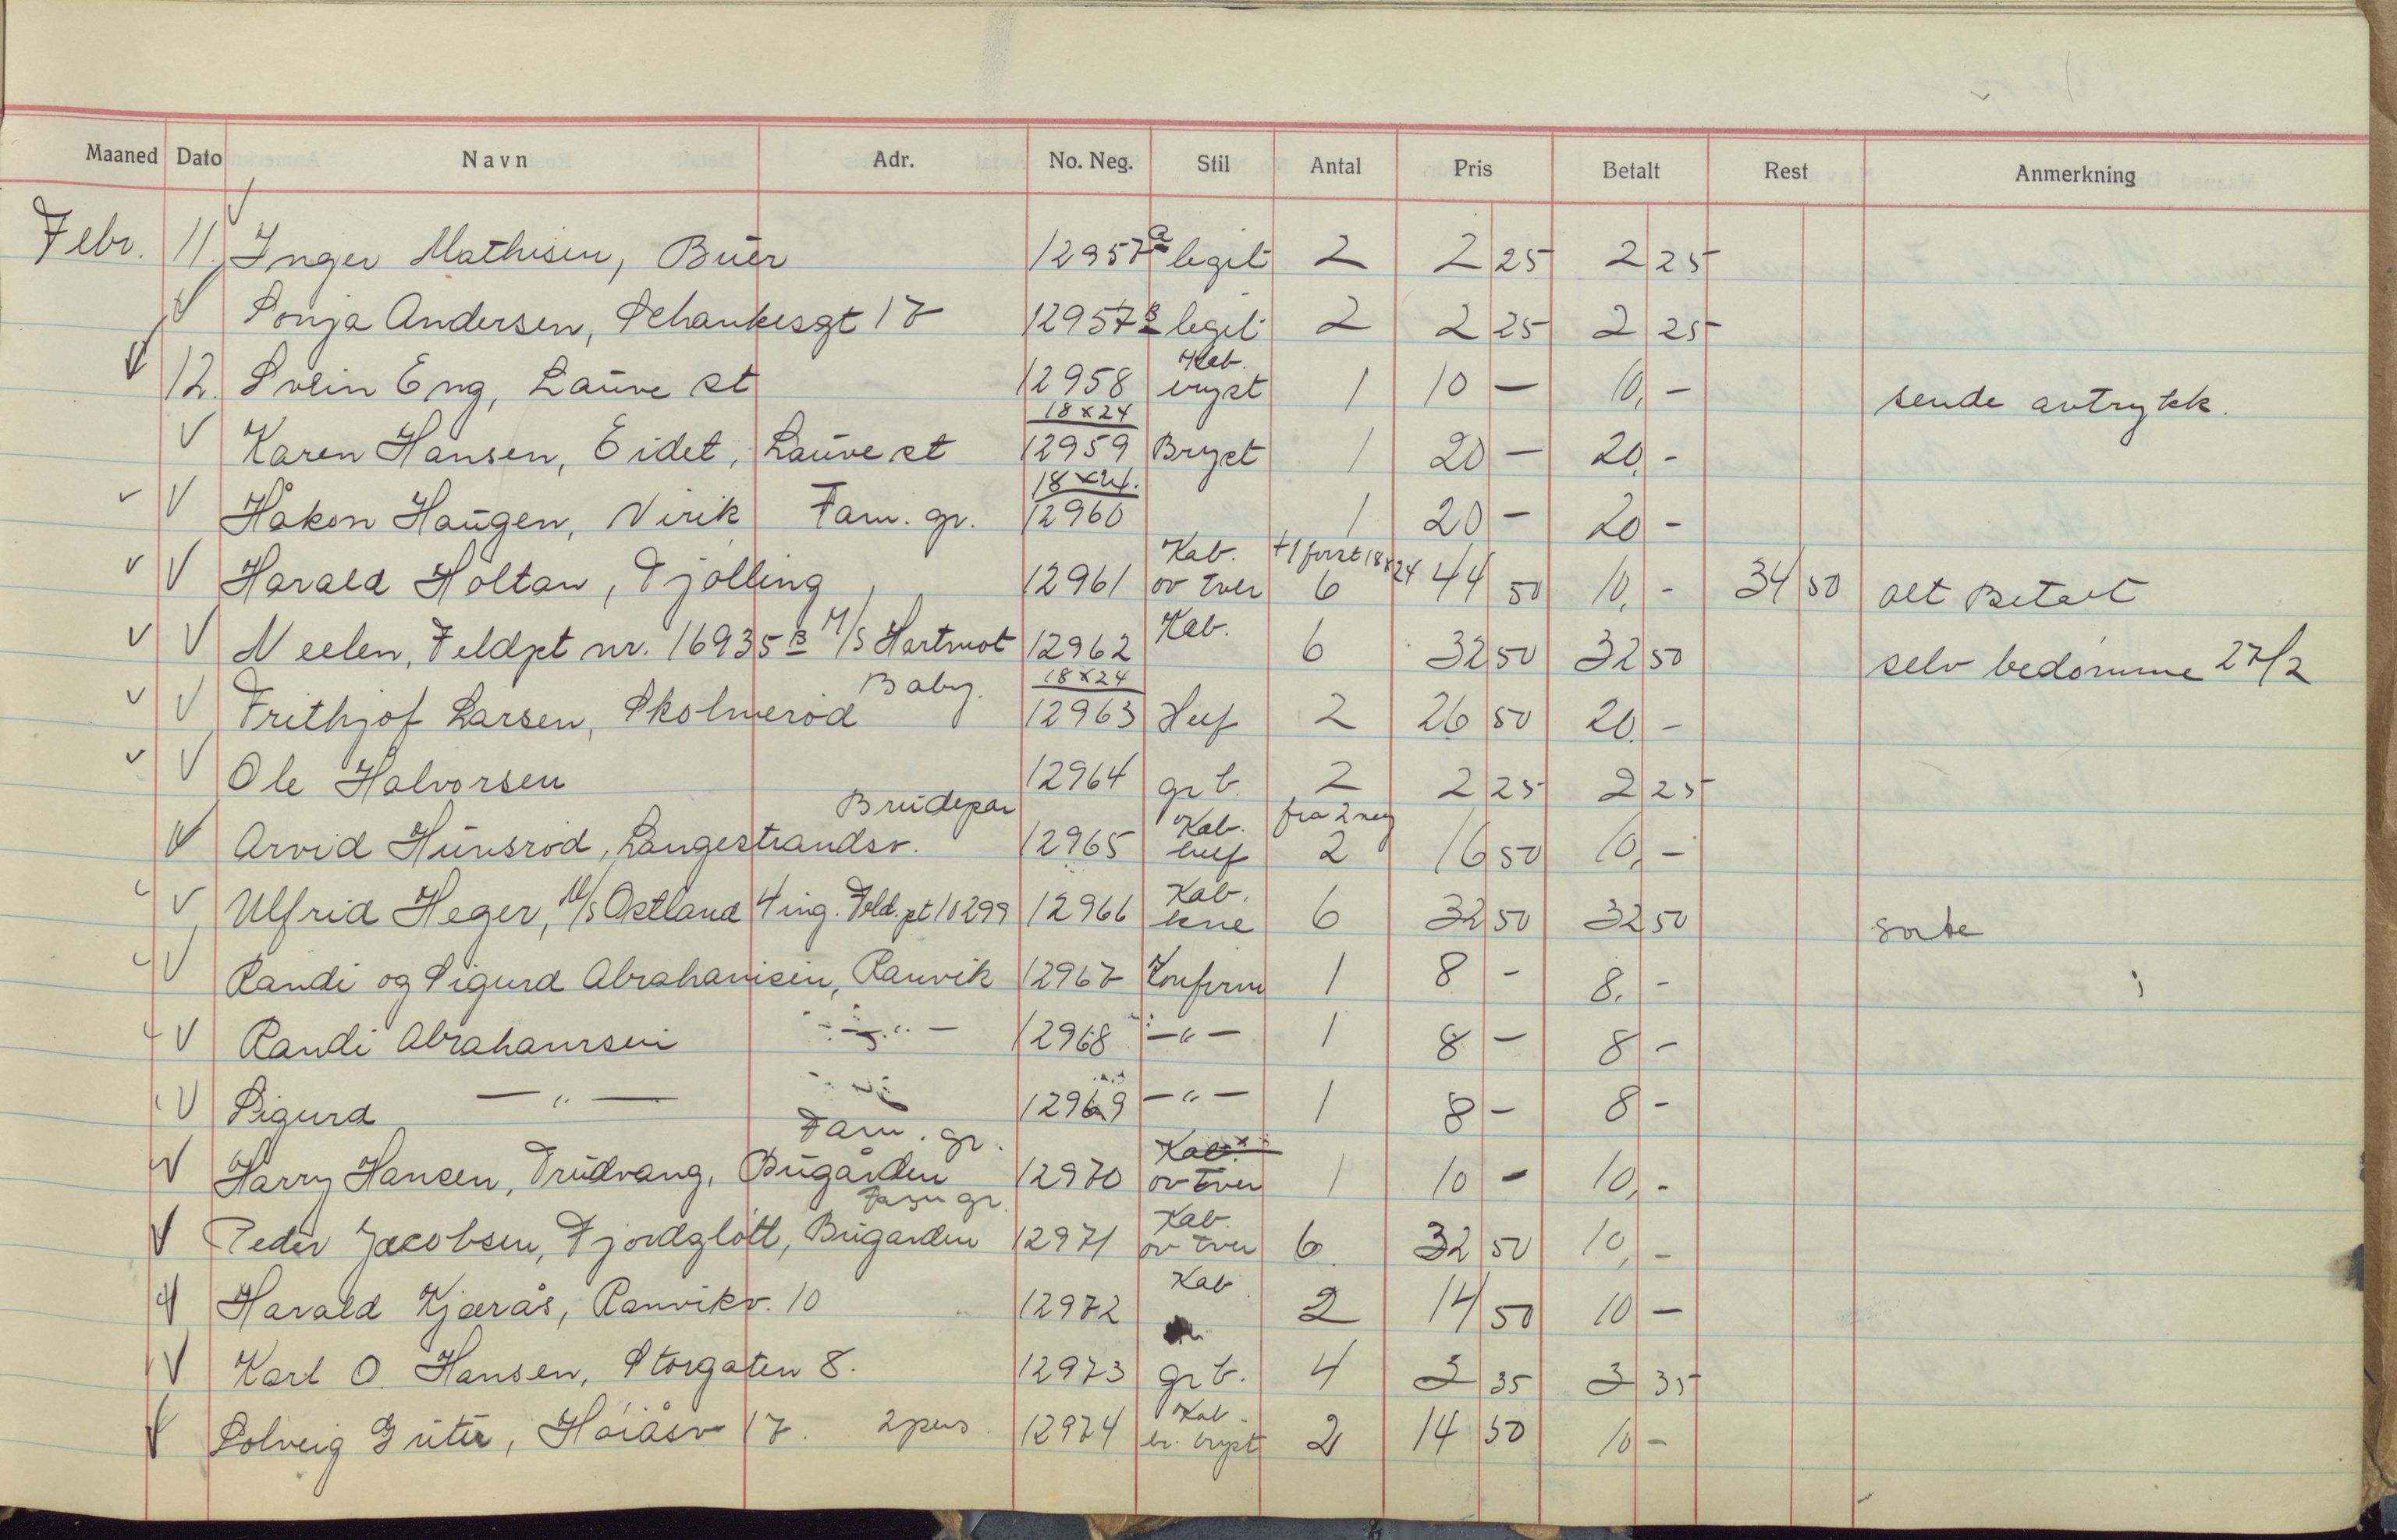 Maaned Dato Navn Adr. No. Neg. Stil Antal Pris Betalt Rest Anmerkning
Febr. 11. Inger Mathisen, Buer 12957a legit 2 2 25 2 25
Sonja Andersen, Schankesgt 17 12957B legit 2 2 25 2 25
Kab.
12. Svein Eng, Lauve st 12958 bryst 1 10 — 10,- sende avtrykk.
18x24
Karen Hansen, Eidet, Lauve st 12959 Bryst 1 20 — 20,-
18x24.
Håkon Haugen, Virik Fam. gr. 12960 1 20 — 20 -
Kab. +1 forst 18x24
Harald Holtan, Tjølling 12961 ov tver 6 44 50 10,- 34 50 alt Betalt
Kab.
Neelen, Feldpt nr. 16935 B M/S Hartmot 12962 6 32 50 32 50 selv bedømme 27/2
Baby. 18x24
Frithjof Larsen, Skolmerød 12963 Huf 2 26 50 20,-
Ole Halvorsen 12964 gr b. 2 2 25 2 25
Brudepar Kab. fra 2 neg
Arvid Hunsrød, Langestrandsv. 12965 huf 2 16 50 10,-
Kab.
Ulfrid Heger, M/S Ostland 4 ing. Feld.pt 10299 12966 kne 6 32 50 32 50 sorte
Randi og Sigurd Abrahamsen, Ranvik 12967 Konfirm 1 8 - 8,-
Randi Abrahamsen — " — 12968 — " — 1 8 — 8 -
Sigurd — " — 12969 — " — 1 8 — 8 -
Fam. gr. Kab.
Harry Hansen, Trudvang, Bugården 12970 ov tver 1 10 - 10,-
Fam gr. Kab.
Peder Jacobsen, Fjordgløtt, Bugarden 12971 ov tver 6. 32 50 10,-
Kab.
Harald Kjærås, Ranvikv. 10 12972 2 14 50 10 —
Karl O. Hansen, Storgaten 8. 12973 gr b. 4 3 35 3 35
Kab.
Solveig Gruter, Høiåsv 17. 2 pers. 12974 br. bryst 2 14 50 10 -